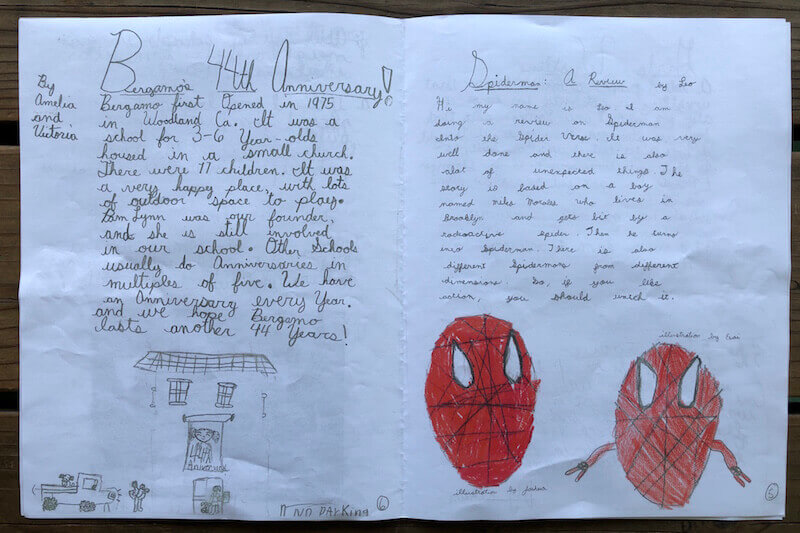 Bergamo's 44th Anniversary!
By
Amelia
and
Victoria
Bergamo first Opened in 1975
in Woodland Ca. It was a
school for 3-6 Year-olds
housed in a small church.
There were 17 children. It was
a very happy place, with lots
of outdoor space to play.
Pam Lynn was our founder,
and she is still involved
in our school. Other Schools
usually do Anniversaries in
multiples of five. We have
an Anniversary every Year.
and we hope Bergamo
lasts another 44 Years!
NO PARKING
6
Spiderman: A Review by Leo
Hi my name is Leo I am
doing a review on Spiderman
Into the Spider Verse. It was very
well done and there is also
alot of unexpected things. The
story is based on a boy
named Miles Morales who lives in
Brooklyn and gets bit by a
radioactive spider. Then he turns
into Spiderman. There is also
different Spidermans from different
dimensions. So, if you like
action, you should watch it.
illustration by
illustration by Joshua
5